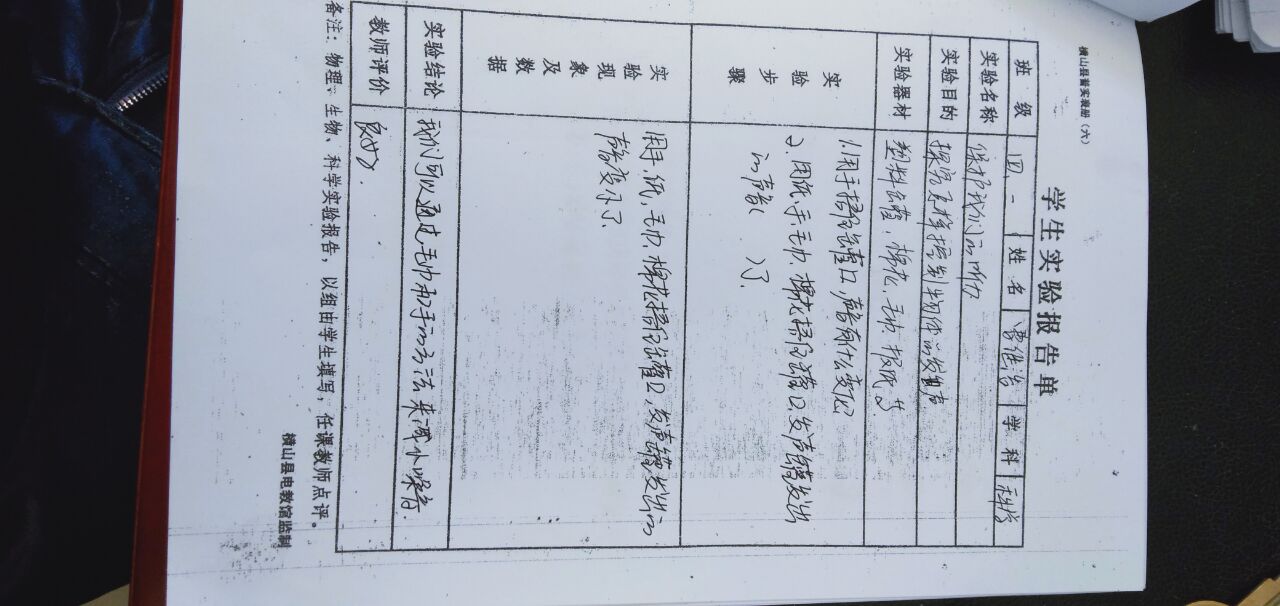 横山县普实表册（六）
学生实验报告单
班级 四.一 姓名 学科 科学
实验名称 保护我们的听力
实验目的 探究怎样控制物体的发声
实验器材 塑料罐，棉花，毛巾，报纸等
实验步骤
1.用手捂住罐口，声音有什么变化
2.用纸、手、毛巾、棉花捂住罐口，发声罐发出
的声音（ ）了.
实验现象及数据
用手、纸、毛巾、棉花捂住罐口，发声罐发出的
声音变小了.
实验结论 我们可以通过毛巾和手的方法来减小噪音.
教师评价 良好.
备注：物理、生物、科学实验报告，以组由学生填写，任课教师点评。
横山县电教馆监制